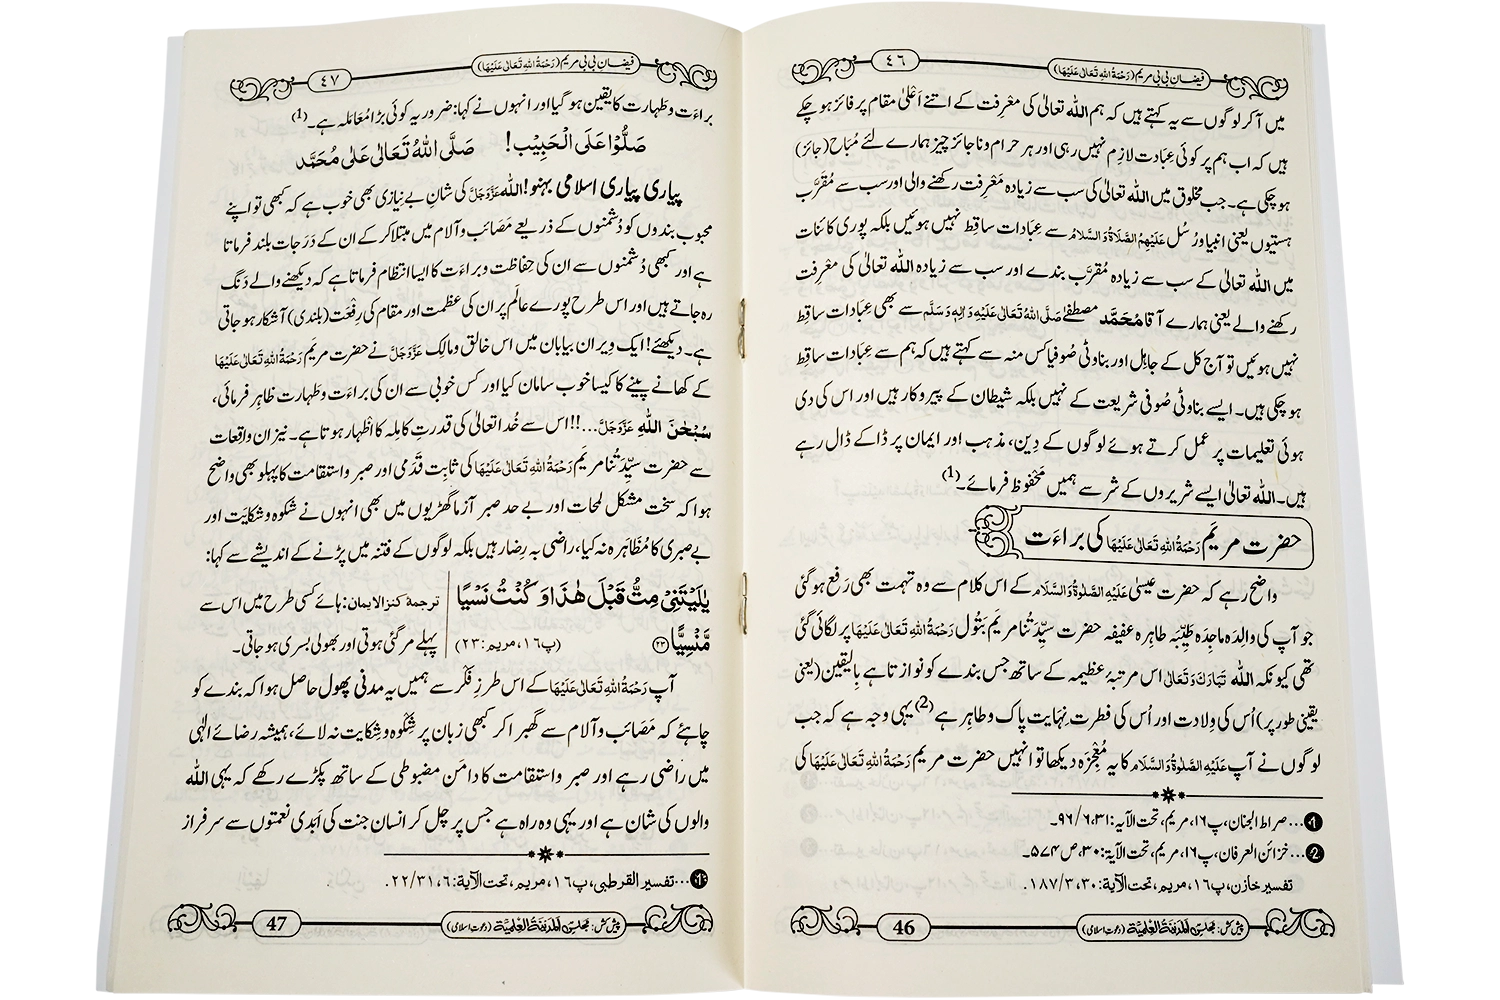 ٤٦
فیضانِ بی بی مریم (رَحْمَةُ اللهِ تَعَالٰی عَلَیْهَا)
میں آ کر لوگوں سے یہ کہتے ہیں کہ ہم الله تعالیٰ کی معْرِفت کے اتنے اَعْلیٰ مقام پر فائز ہو چکے
ہیں کہ اب ہم پر کوئی عِبَادت لازِم نہیں رہی اور ہر حرام و ناجائز چیز ہمارے لئے مُبَاح (جائز)
ہو چکی ہے۔ جب مخلوق میں الله تعالیٰ کی سب سے زیادہ مَعْرِفت رکھنے والی اور سب سے مُقَرَّب
ہستیوں یعنی انبیا و رُسُل عَلَیْهِمُ الصَّلَاةُ وَالسَّلَامُ سے عِبَادات ساقِط نہیں ہوئیں بلکہ پوری کائنات
میں الله تعالیٰ کے سب سے زیادہ مُقرَّب بندے اور سب سے زیادہ الله تعالیٰ کی معْرِفت
رکھنے والے یعنی ہمارے آقا مُحَمَّد مصطفےٰ صَلَّی اللهُ تَعَالٰی عَلَیْهِ وَاٰلِهٖ وَسَلَّم سے بھی عِبَادات ساقِط
نہیں ہوئیں تو آج کل کے جاہِل اور بناوٹی صُوفیا کس منہ سے کہتے ہیں کہ ہم سے عِبَادات ساقط
ہو چکی ہیں۔ ایسے بناوٹی صُوفی شریعت کے نہیں بلکہ شیطان کے پیروکار ہیں اور اس کی دی
ہوئی تعلیمات پر عمل کرتے ہوئے لوگوں کے دِین، مذہب اور ایمان پر ڈاکے ڈال رہے
ہیں۔ الله تعالیٰ ایسے شریروں کے شر سے ہمیں مَحْفوظ فرمائے۔(1)
حضرت مریَم رَحْمَةُ اللهِ تَعَالٰی عَلَیْهَا کی براءَت
واضح رہے کہ حضرت عیسیٰ عَلَیْهِ الصَّلٰوةُ وَالسَّلَام کے اس کلام سے وہ تہمت بھی رَفع ہو گئی
جو آپ کی والِدہ ماجِدہ طَیِّبَہ طاہِرہ عفیفہ حضرت سیِّدَتُنا مریم بَتُول رَحْمَةُ اللهِ تَعَالٰی عَلَیْهَا پر لگائی گئی
تھی کیونکہ الله تَبَارَكَ وَتَعَالٰی اس مرتبۂ عظیمہ کے ساتھ جس بندے کو نوازتا ہے بِالیقین (یعنی
یقینی طور پر) اُس کی وِلادت اور اُس کی فطرت نِہَایت پاک و طاہِر ہے(2) یہی وجہ ہے کہ جب
لوگوں نے آپ عَلَیْهِ الصَّلٰوةُ وَالسَّلَام کا یہ مُعْجِزَہ دیکھا تو انہیں حضرت مریم رَحْمَةُ اللهِ تَعَالٰی عَلَیْهَا کی
1…صراط الجنان، پ١٦، مریم، تحت الآیہ: ٣١، ٦/٩٦۔
2…خزائن العرفان، پ١٦، مریم، تحت الآیۃ: ٣٠، ص ٥٧٤۔
تفسیر خازن، پ١٦، مریم، تحت الآیة: ٣٠، ٣/١٨٧.
پیش کش: مجلس المدینۃ العلمیۃ (دعوتِ اسلامی)
46
فیضانِ بی بی مریم (رَحْمَةُ اللهِ تَعَالٰی عَلَیْهَا)
٤٧
براءَت و طہارت کا یقین ہو گیا اور انہوں نے کہا: ضرور یہ کوئی بڑا مُعَامَلہ ہے۔(1)
صَلُّوْا عَلَى الْحَبِیْب! صَلَّى اللهُ تَعَالٰى عَلٰى مُحَمَّد
پیاری پیاری اسلامی بہنو! الله عَزَّوَجَلَّ کی شانِ بے نیازی بھی خوب ہے کہ کبھی تو اپنے
محبوب بندوں کو دُشمنوں کے ذریعے مَصَائب و آلام میں مبتلا کر کے ان کے دَرَجات بلند فرماتا
ہے اور کبھی دُشمنوں سے ان کی حفاظت و براءَت کا ایسا انتظام فرماتا ہے کہ دیکھنے والے دَنگ
رہ جاتے ہیں اور اس طرح پورے عالَم پر ان کی عظمت اور مقام کی رِفْعَت (بلندی) آشکار ہو جاتی
ہے۔ دیکھئے! ایک ویران بیابان میں اس خالق و مالِک عَزَّوَجَلَّ نے حضرت مریم رَحْمَةُ اللهِ تَعَالٰی عَلَیْهَا
کے کھانے پینے کا کیسا خوب سامان کیا اور کس خوبی سے ان کی براءَت و طہارت ظاہِر فرمائی،
سُبْحٰنَ اللهِ عَزَّوَجَلَّ…!! اس سے خُدا تعالیٰ کی قدرتِ کامِلہ کا اظْہار ہوتا ہے۔ نیز ان واقعات
سے حضرت سیِّدَتُنا مریم رَحْمَةُ اللهِ تَعَالٰی عَلَیْهَا کی ثابِت قَدَمی اور صبر و استقامت کا پہلو بھی واضح
ہوا کہ سخت مشکل لمحات اور بے حد صبر آزما گھڑیوں میں بھی انہوں نے شکوہ و شکایَت اور
بے صبری کا مُظَاہَرہ نہ کیا، راضی بہ رِضا رہیں بلکہ لوگوں کے فتنہ میں پڑنے کے اندیشے سے کہا:
یٰلَیْتَنِیْ مِتُّ قَبْلَ هٰذَا وَ كُنْتُ نَسْیًا
مَّنْسِیًّا ﴿٢٣﴾ (پ١٦، مریم: ٢٣)
ترجمۂ کنز الایمان: ہائے کسی طرح میں اس سے
پہلے مر گئی ہوتی اور بھولی بسری ہو جاتی۔
آپ رَحْمَةُ اللهِ تَعَالٰی عَلَیْهَا کے اس طرزِ فِکْر سے ہمیں یہ مدنی پھول حاصل ہوا کہ بندے کو
چاہئے کہ مَصَائب و آلام سے گھبرا کر کبھی زبان پر شِکْوہ و شِکایت نہ لائے، ہمیشہ رضائے الٰہی
میں راضی رہے اور صبر و استقامت کا دامَن مضبوطی کے ساتھ پکڑے رکھے کہ یہی الله
والوں کی شان ہے اور یہی وہ راہ ہے جس پر چل کر انسان جنت کی اَبَدی نعمتوں سے سرفراز
1…تفسیر القرطبی، پ١٦، مریم، تحت الآیة: ٦، ٢٢/٣١.
پیش کش: مجلس المدینۃ العلمیۃ (دعوتِ اسلامی)
47